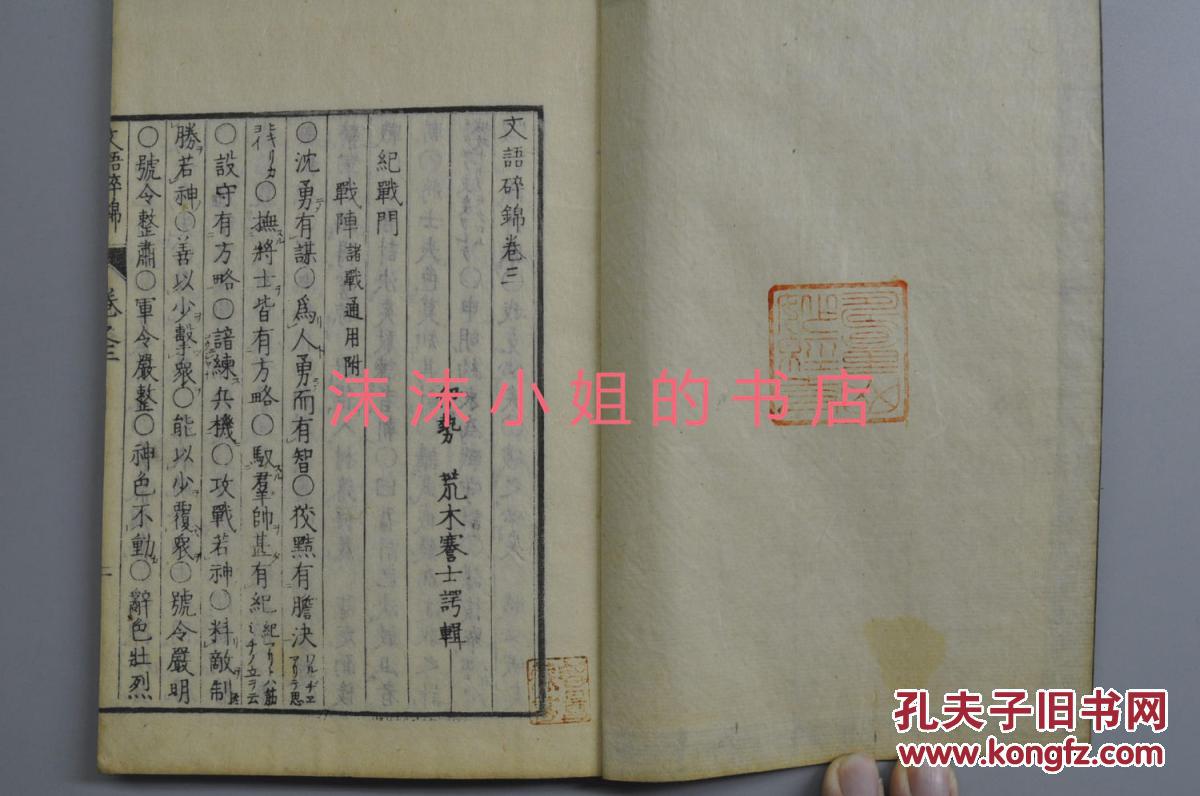 文語碎錦卷三
勢　荒木謇士諤輯
紀戰門
戰陣 諸戰通用附
○沈勇有謀○爲人勇而有智○狡黠有膽決 ワルヂヱアリテ思
ヒキリカヨイ○撫將士皆有方略○馭羣帥甚有紀 紀アリトハ筋ミチノ立ヲ云
○設守有方略○諳練兵機○攻戰若神○料敵制
勝若神○善以少擊衆○能以少覆衆○號令嚴明
○號令整肅○軍令嚴整○神色不動○辭色壯烈
文語碎錦 卷之三 一
沫沫小姐的书店
孔夫子旧书网
www.kongfz.com